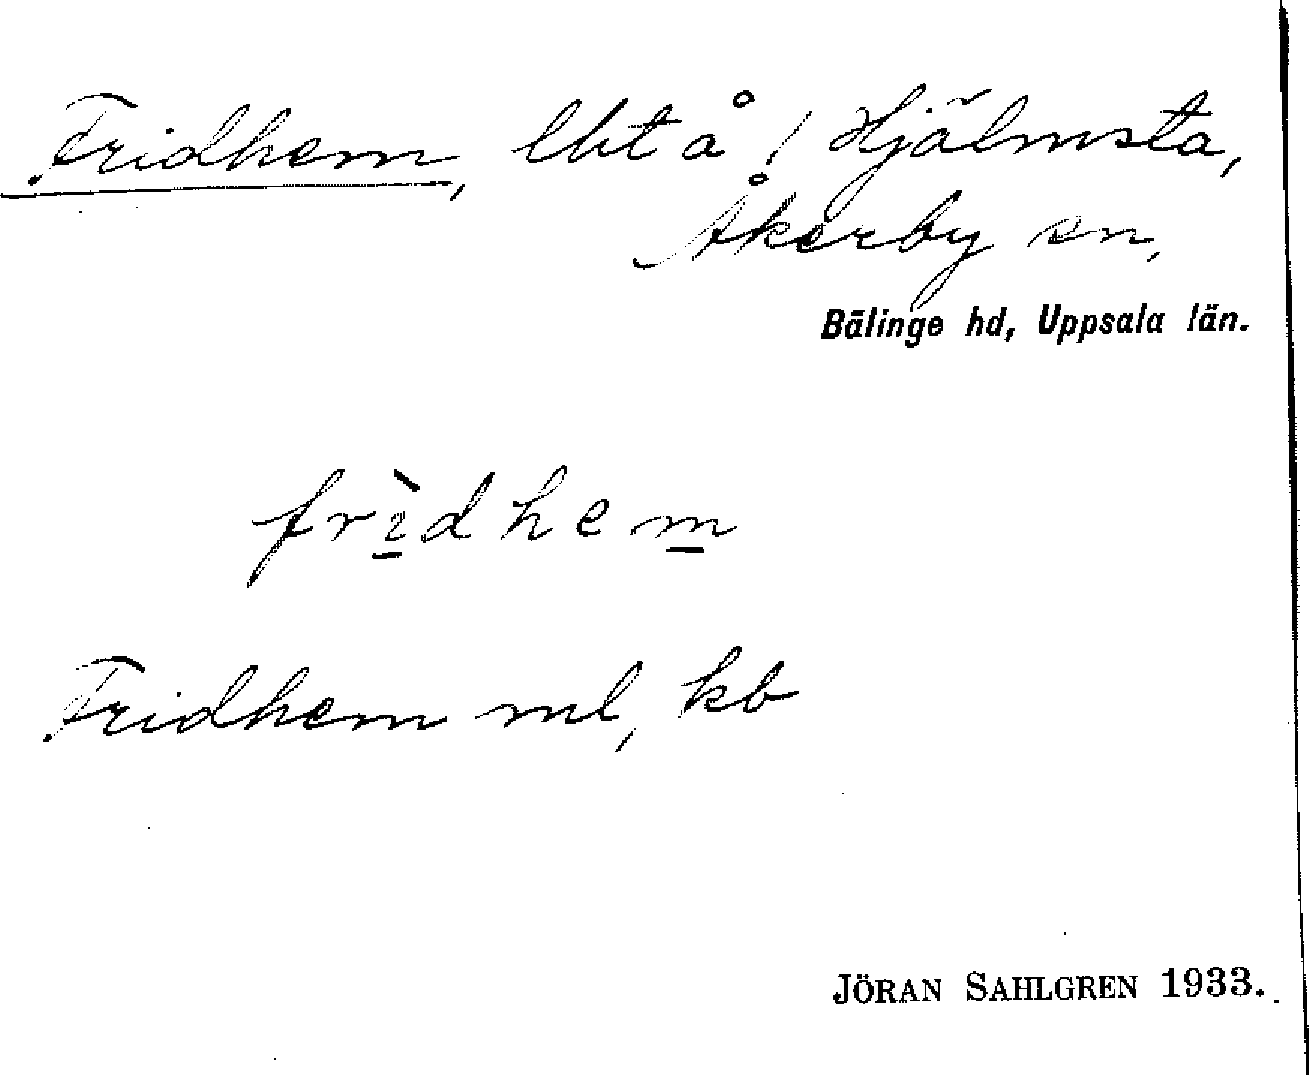 Fridhem, lht å / Hjälmsta,
Åkerby sn,
Bälinge hd, Uppsala län.
frìdhem
Fridhem ml, kb
JÖRAN SAHLGREN 1933.